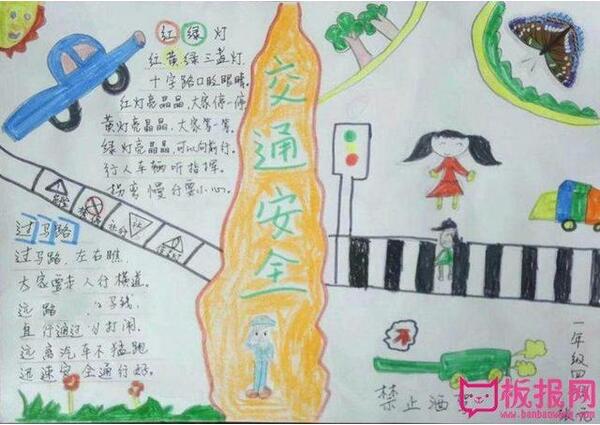 红绿灯
红黄绿三盏灯,
十字路口眨眼睛。
红灯亮晶晶,大家停一停
黄灯亮晶晶,大家等一等。
绿灯亮晶晶,可以向前行。
行人车辆听指挥。
拐弯慢行要小心。
交通安全
过马路
过马路,左右瞧
大家要走人行横道。
马线
直行通过勿打闹。
远离汽车不猛跑
迅速安全通行好。
禁止酒
一年级四
板报网
www.banbaowang.com